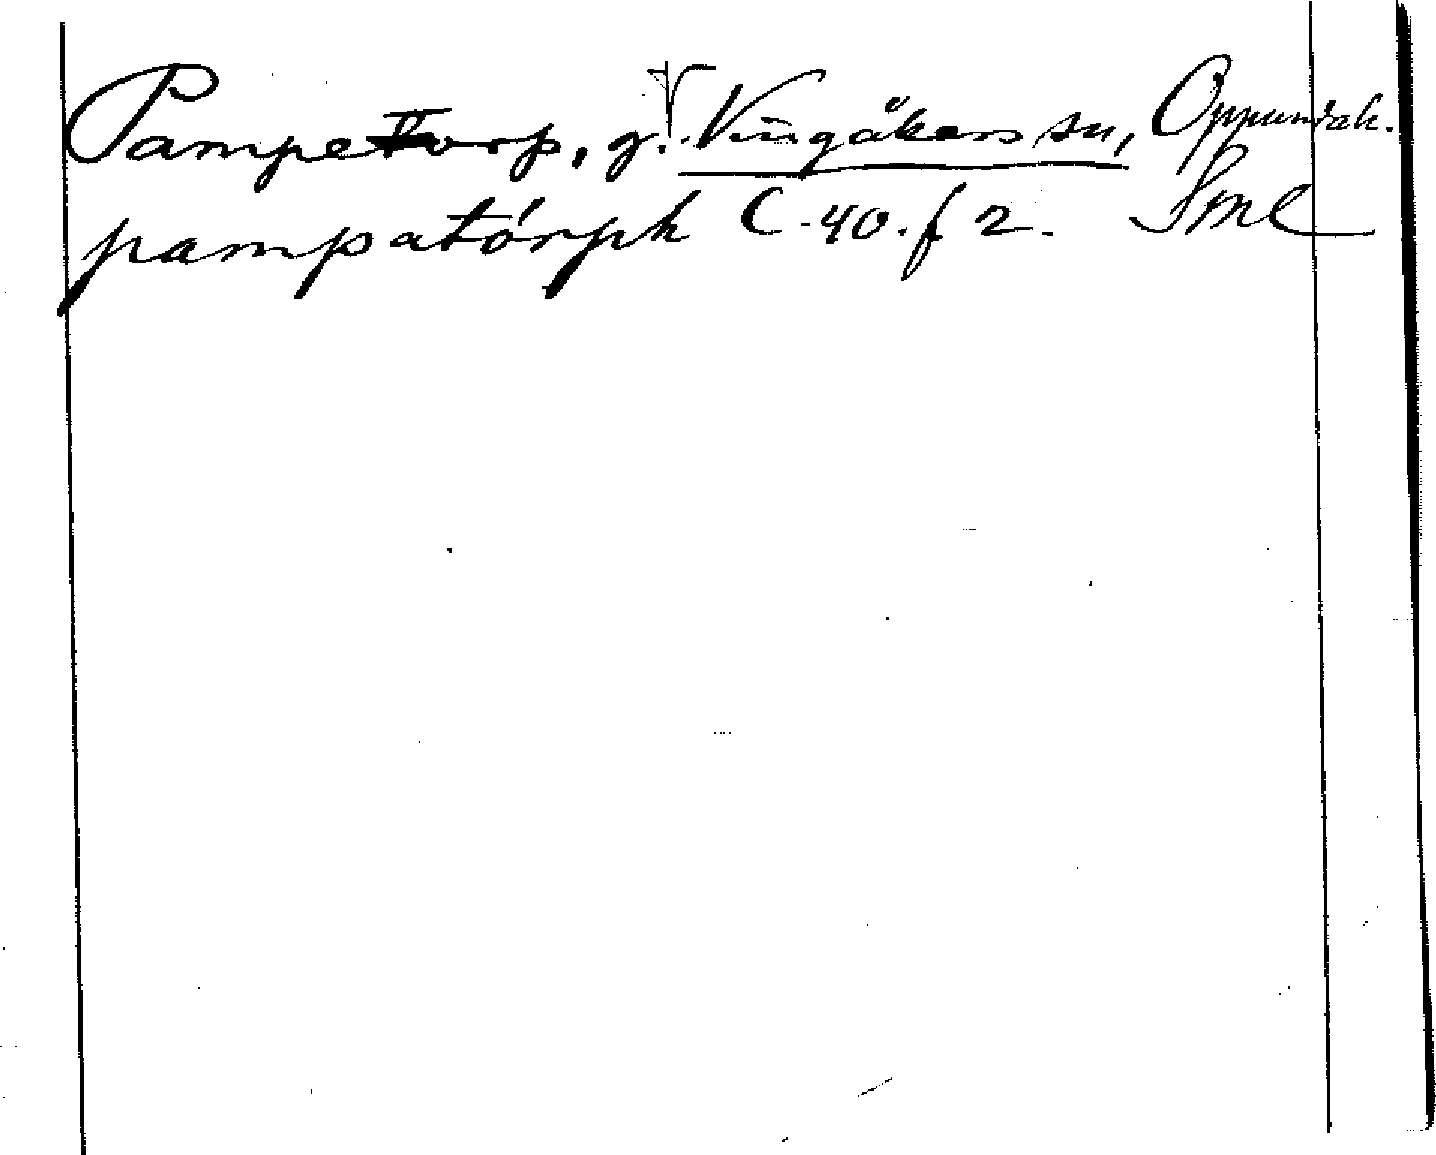 Pampetorp, g. V. Vingåkers sn, Oppunda h.
pampatórph C. 40. f 2. Sml